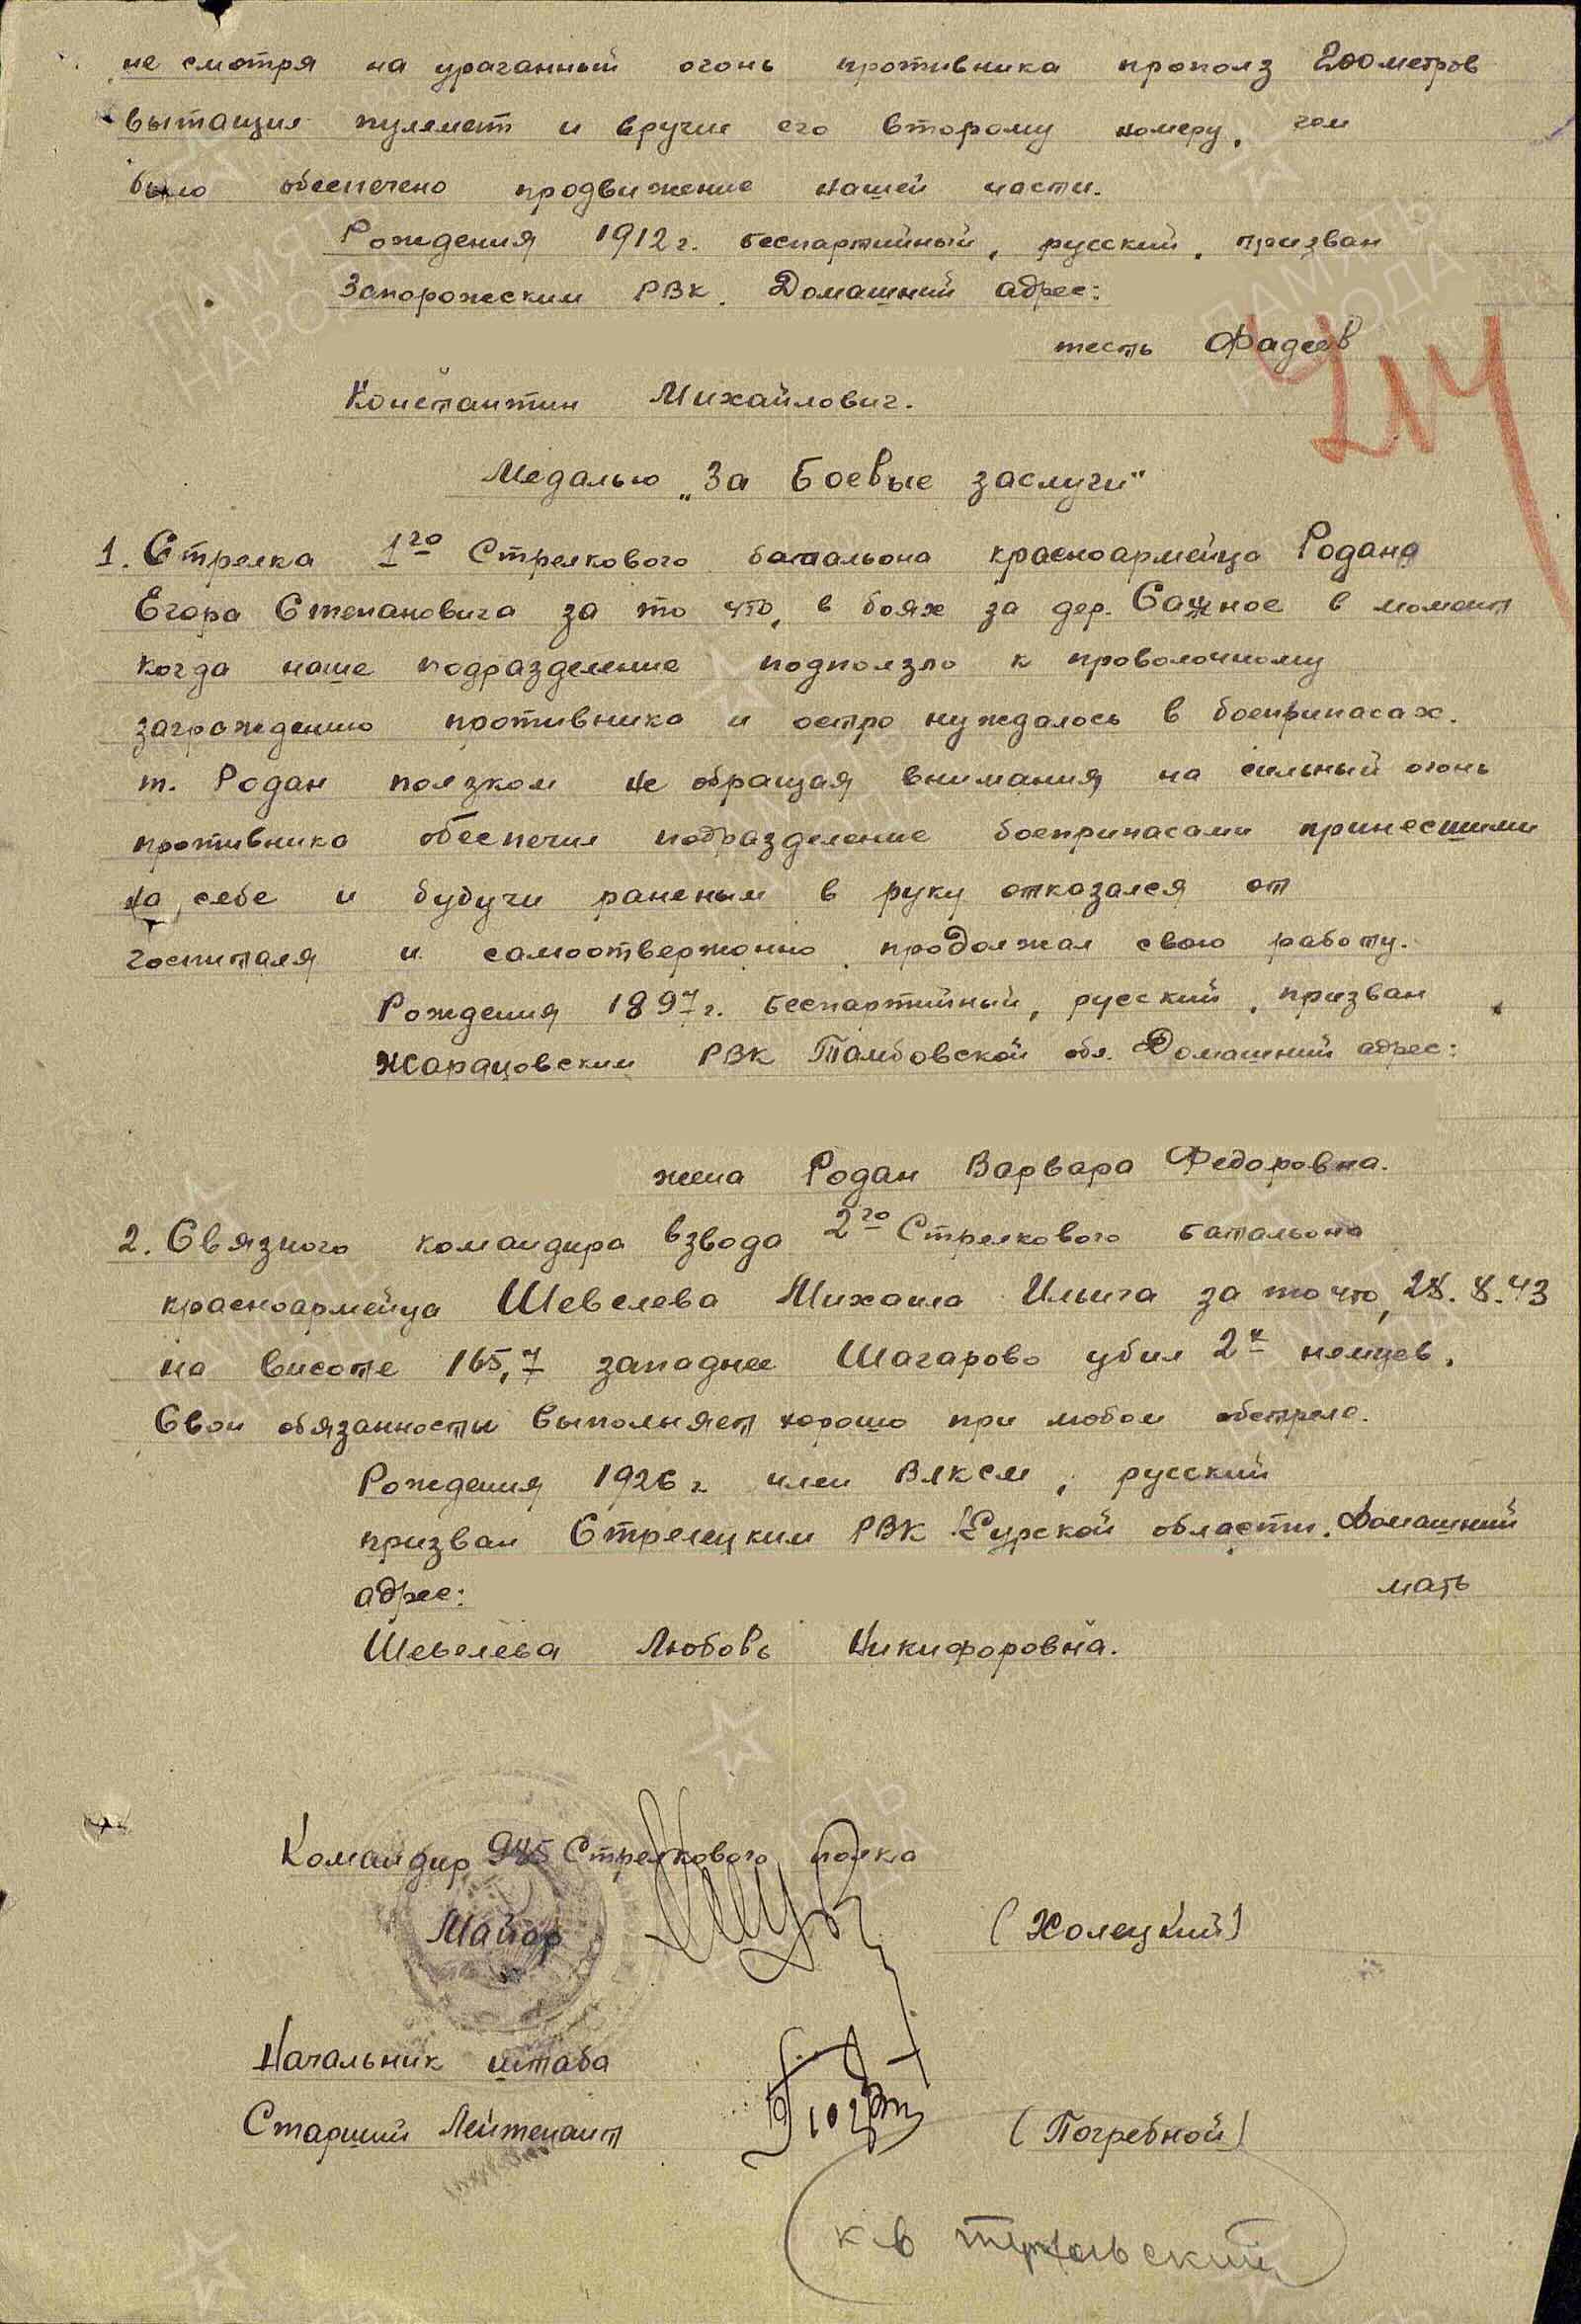 не смотря на ураганный огонь противника прополз 200 метров
вытащил пулемет и вручил его второму номеру, чем
было обеспечено продвижение нашей части.
Рождения 1912 г. беспартийный, русский, призван
Запорожским РВК. Домашний адрес:
тесть Фадеев
214
Константин Михайлович.
Медалью „За Боевые заслуги"
1. Стрелка 1го Стрелкового батальона красноармейца Родана
Егора Степановича за то что, в боях за дер. Сажное в момент
когда наше подразделение подползло к проволочному
заграждению противника и остро нуждалось в боеприпасах.
т. Родан ползком не обращая внимания на сильный огонь
противника обеспечил подразделение боеприпасами принесшими
на себе и будучи раненым в руку отказался от
госпиталя и самоотверженно продолжал свою работу.
Рождения 1897 г. беспартийный, русский, призван
РВК Тамбовской обл. Домашний адрес:
жена Родан Варвара Федоровна.
2. Связного командира взвода 2го Стрелкового батальона
красноармейца Шевелева Михаила Ильича за то что, 28.8.43
на висоте 165,7 западнее Шагарово убил 2х немцев.
Свои обязанносты выполняет хорошо при любом обстреле.
Рождения 1926 г член ВЛКСМ, русский
призван Стрелецким РВК Курской области. Домашний
адрес: мать
Шевелева Любовь Никифоровна.
Командир 985 Стрелкового полка
Майор (Холецкий)
Начальник штаба
Старший Лейтенант (Погребной)
к-в